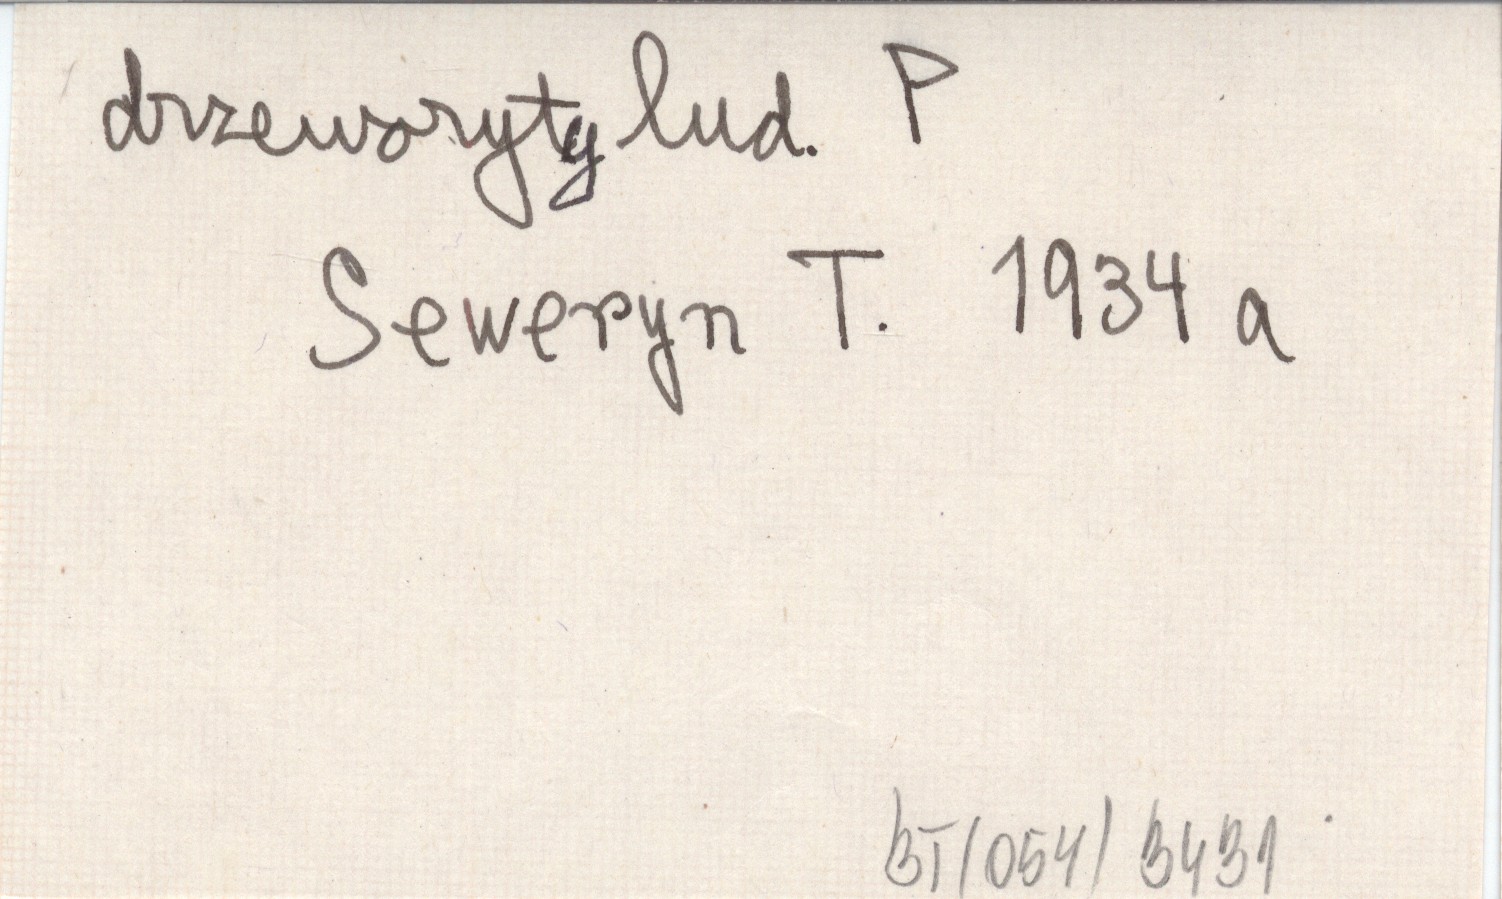 drzeworyty lud. P
Seweryn T. 1934 a
BT/054/3431